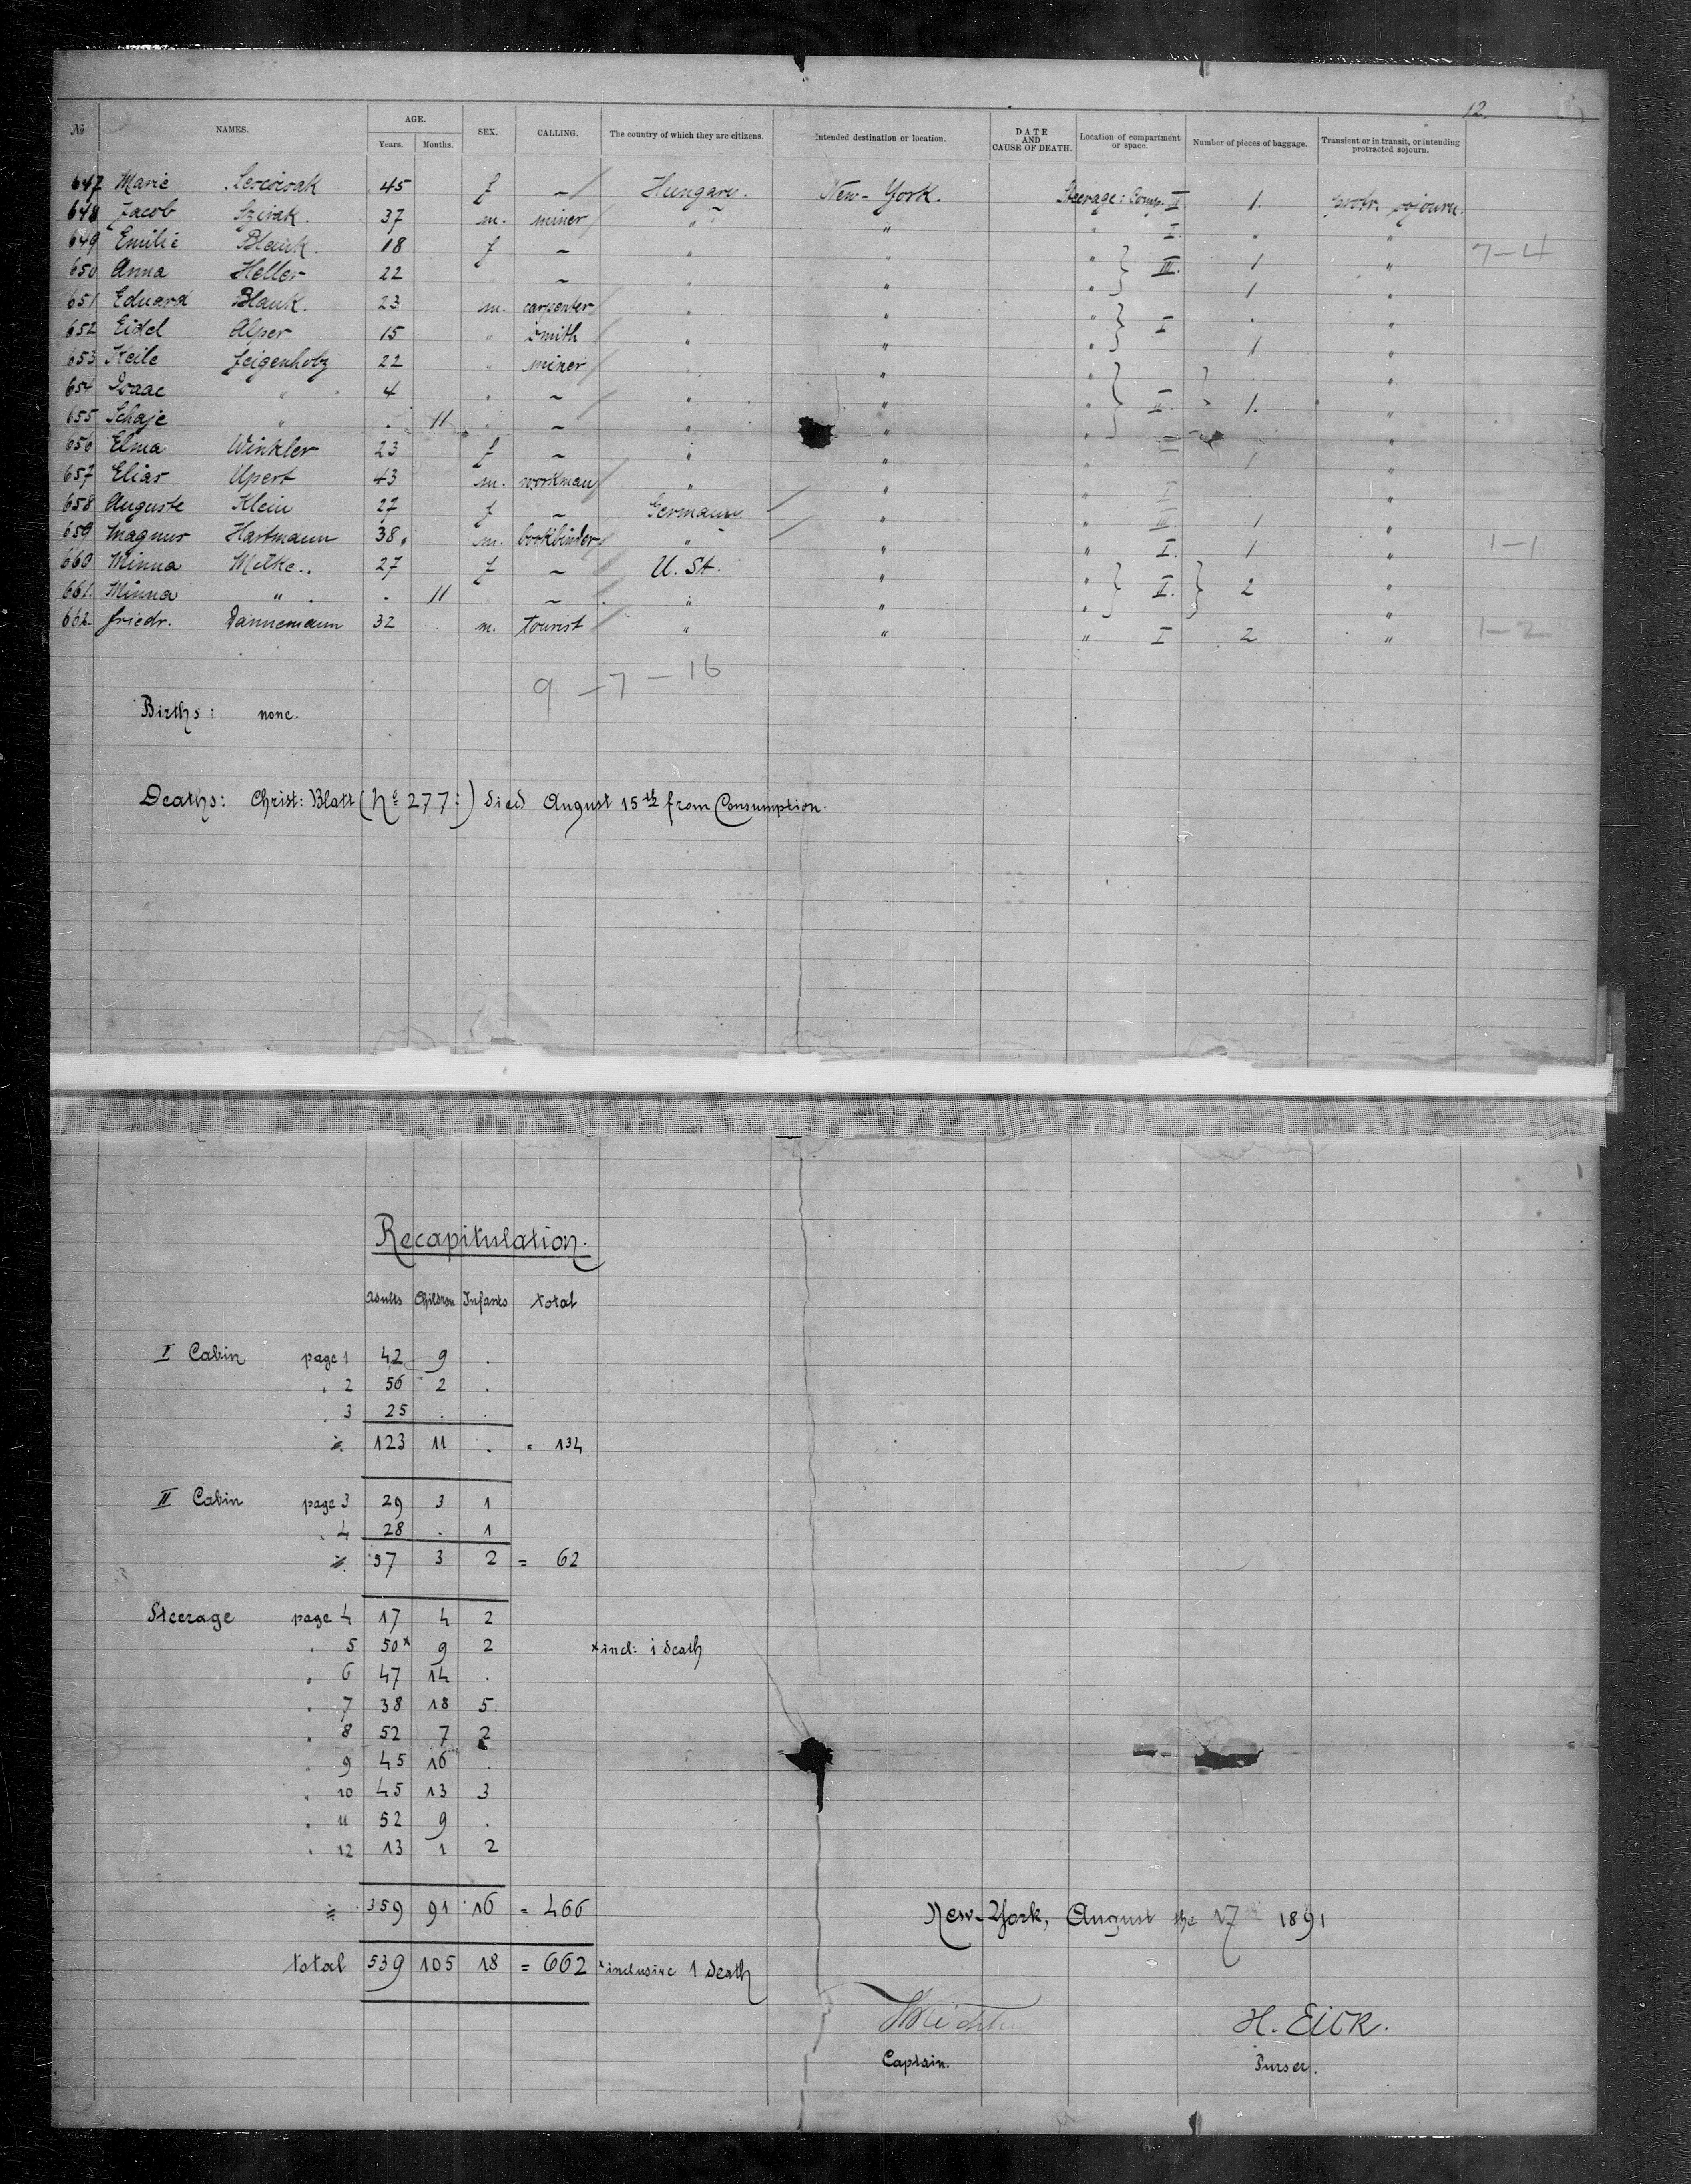 12.
№ NAMES. AGE. Years. Months. SEX. CALLING. The country of which they are citizens. Intended destination or location. DATE AND CAUSE OF DEATH. Location of compartment or space. Number of pieces of baggage. Transient or in transit, or intending protracted sojourn.
647 Marie 45 f — Hungary. New-York. Steerage: Comp. II 1. protr. sojourn.
648 Jacob Szivak. 37 m. miner " " " I. . "
649 Emilie Blank. 18 f — " " " } III. 1 " 7-4
650 Anna Heller 22 — " " " 1 "
651 Eduard Blank. 23 m. carpenter " " " } I . "
652 Eidel Alper 15 " smith " " " 1 "
653 Keile Feigenholz 22 " miner " " " } . "
654 Isaac " 4 " — " " " II. 1. "
655 Schaje " . 11 " — " " " "
656 Elma Winkler 23 f — " " " 1 "
657 Elias Upert 43 m. workman " " " I . "
658 Auguste Klein 27 f — Germany " " III. 1 "
659 Magnus Hartmann 38 m. bookbinder " " " I. 1 " 1-1
660 Minna Metke.. 27 f — U. St. " " } II. } 2 "
661. Minna " . . 11 — " " " "
662. Friedr. Dannemann 32 . m. tourist " " " I 2 " 1-2
9-7-16
Births: none.
Deaths: Christ: Blatt (No 277:) died August 15th from Consumption.
Recapitulation.
Adults Children Infants total
I Cabin page 1 42 9 .
" 2 56 2 .
" 3 25 . .
123 11 . = 134
II Cabin page 3 29 3 1
" 4 28 . 1
57 3 2 = 62
Steerage page 4 17 4 2
" 5 50* 9 2 *incl: 1 death
" 6 47 14 .
" 7 38 18 5.
" 8 52 7 2
" 9 45 16 .
" 10 45 13 3
" 11 52 9 .
" 12 13 1 2
359 91 16 = 466
New-York, August the 17 1891
total 539 105 18 = 662 *inclusive 1 death
H. Eick.
Captain. Purser.